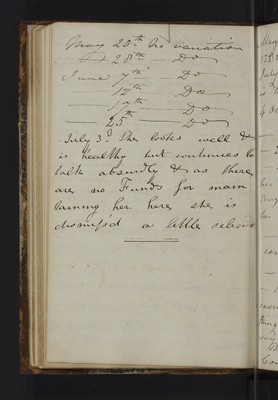 May 20th No variation
28th — Do
June 7th — Do
12th — Do
17th — Do
25th — Do
July 3d. She looks well &
is healthy but continues to
talk absurdly & as there
are no Funds for main
taining her here she is
dismiss'd a little reliev'd